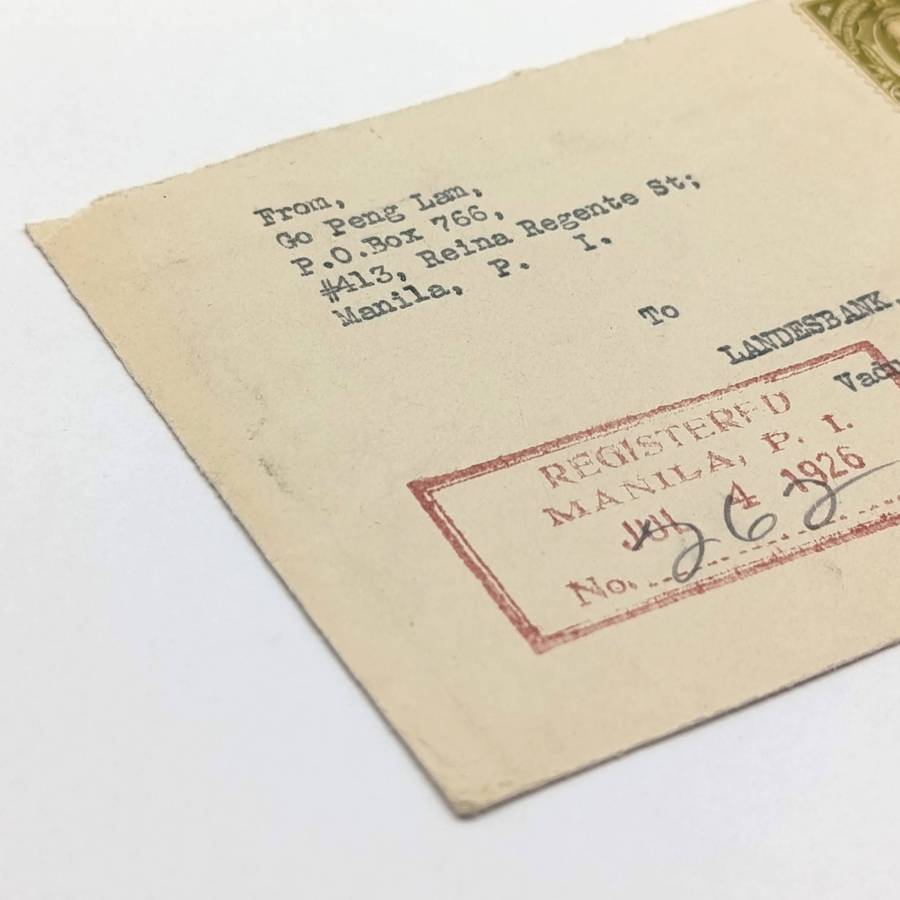 From,
Go Peng Lam,
P.O.Box 766,
#413, Reina Regente St;
Manila, P. I.
To
LANDESBANK,
Vadu
REGISTERED
MANILA, P. I.
JUL 4 1926
No.